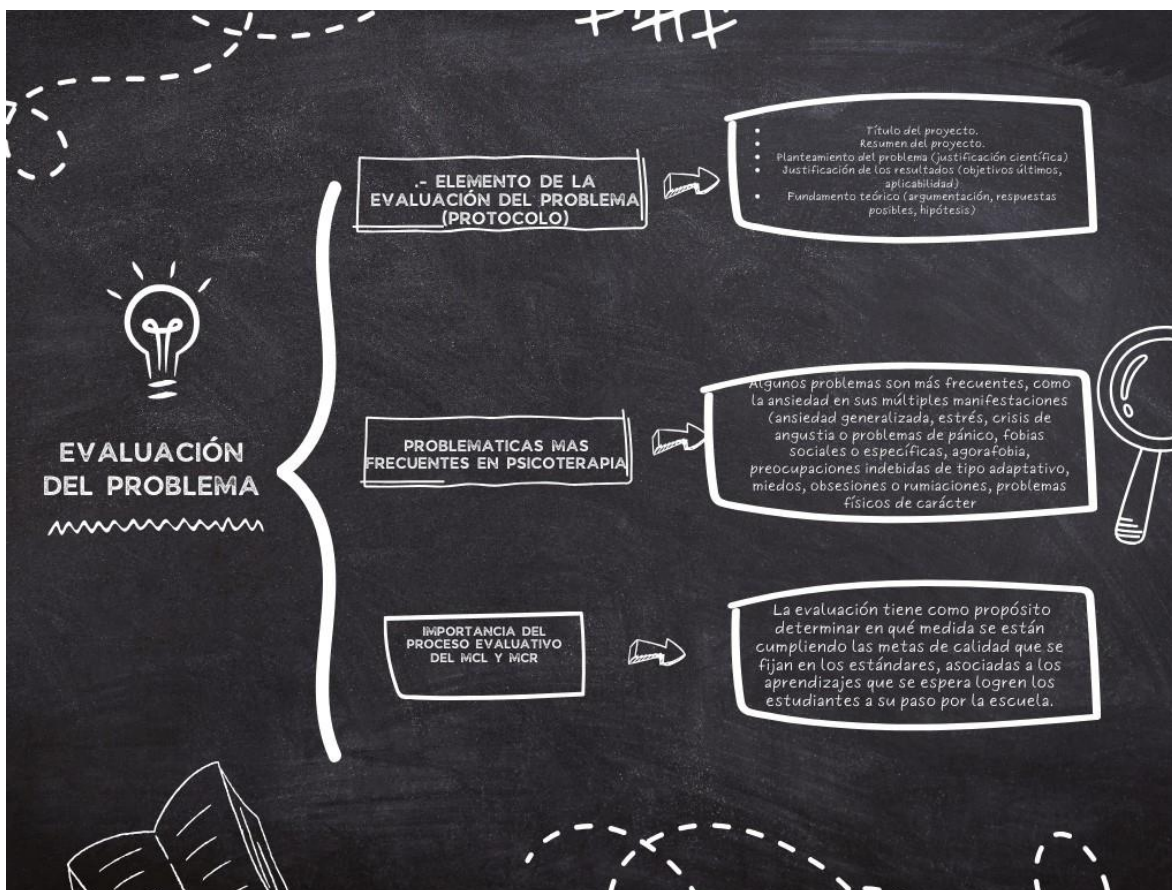 EVALUACIÓN
DEL PROBLEMA
.- ELEMENTO DE LA
EVALUACIÓN DEL PROBLEMA
(PROTOCOLO)
• Título del proyecto.
• Resumen del proyecto.
• Planteamiento del problema (justificación científica)
• Justificación de los resultados (objetivos últimos,
aplicabilidad)
• Fundamento teórico (argumentación, respuestas
posibles, hipótesis)
PROBLEMATICAS MAS
FRECUENTES EN PSICOTERAPIA
Algunos problemas son más frecuentes, como
la ansiedad en sus múltiples manifestaciones
(ansiedad generalizada, estrés, crisis de
angustia o problemas de pánico, fobias
sociales o específicas, agorafobia,
preocupaciones indebidas de tipo adaptativo,
miedos, obsesiones o rumiaciones, problemas
físicos de carácter
IMPORTANCIA DEL
PROCESO EVALUATIVO
DEL MCL Y MCR
La evaluación tiene como propósito
determinar en qué medida se están
cumpliendo las metas de calidad que se
fijan en los estándares, asociadas a los
aprendizajes que se espera logren los
estudiantes a su paso por la escuela.